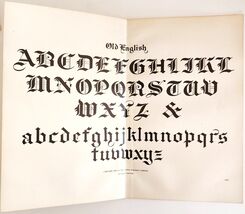 Old English
ABCDEFGHIJKL
MNOPQRSTUV
WXYZ &
abcdefghijklmnopqrs
tuvwxyz